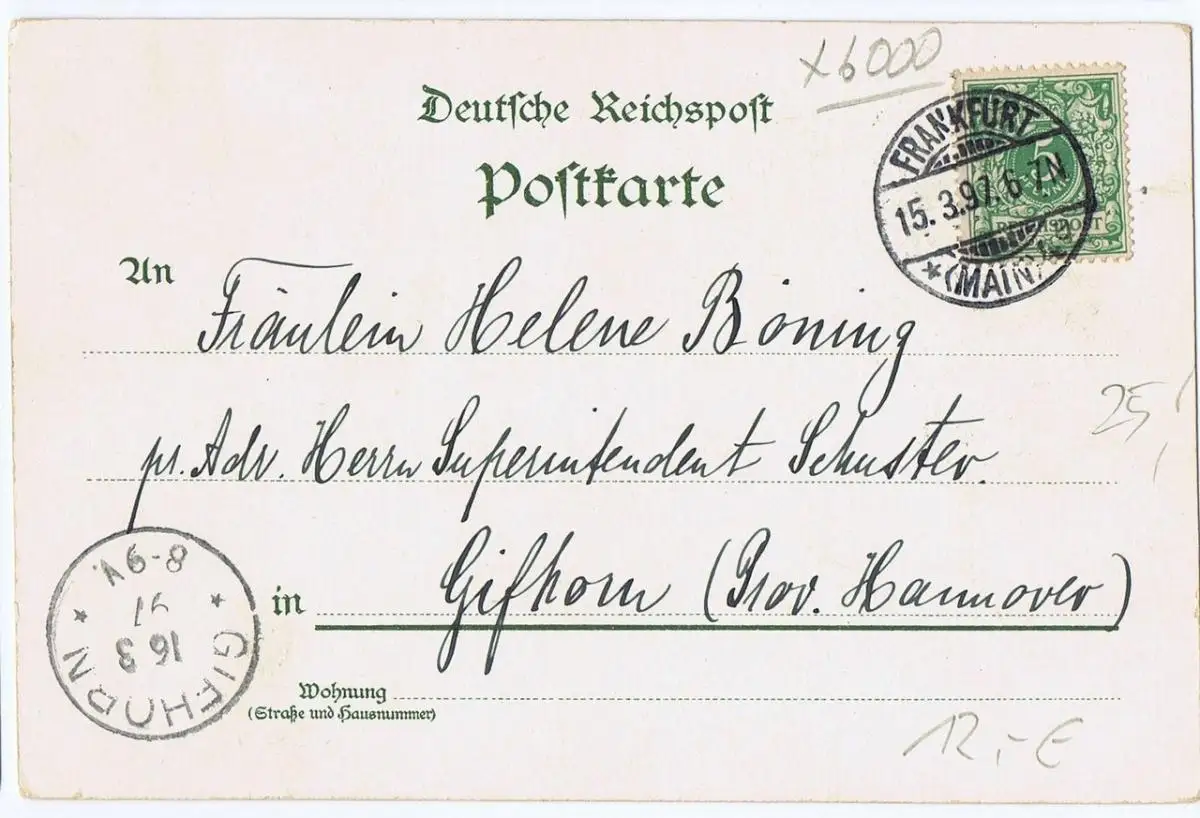 x6000
Deutsche Reichspost
Postkarte
FRANKFURT
15. 3.97. 6-7N
* (MAIN)
5
REICHSPOST
An
Fräulein Helene Böning
pr. Adr. Herrn Superintendent Schuster.
25,
in Gifhorn (Prov. Hannover)
GIFHORN
16 3
97
8-9V.
Wohnung
(Straße und Hausnummer)
12,- €